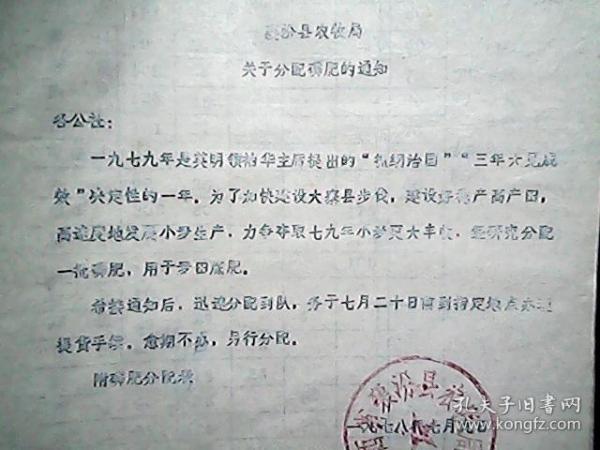 襄汾县农牧局
关于分配磷肥的通知
各公社：
一九七九年是英明领袖华主席提出的“抓纲治国”“三年大见成
效”决定性的一年。为了加快建设大寨县步伐，建设好稳产高产田，
高速度地发展小麦生产，力争夺取七九年小麦更大丰收，经研究分配
一批磷肥，用于麦田底肥。
希接通知后，迅速分配到队，务于七月二十日前到指定地点办理
提货手续。愈期不办，另行分配。
附磷肥分配表
襄汾县
一九七八年七月九日
孔夫子旧书网
www.kongfz.com